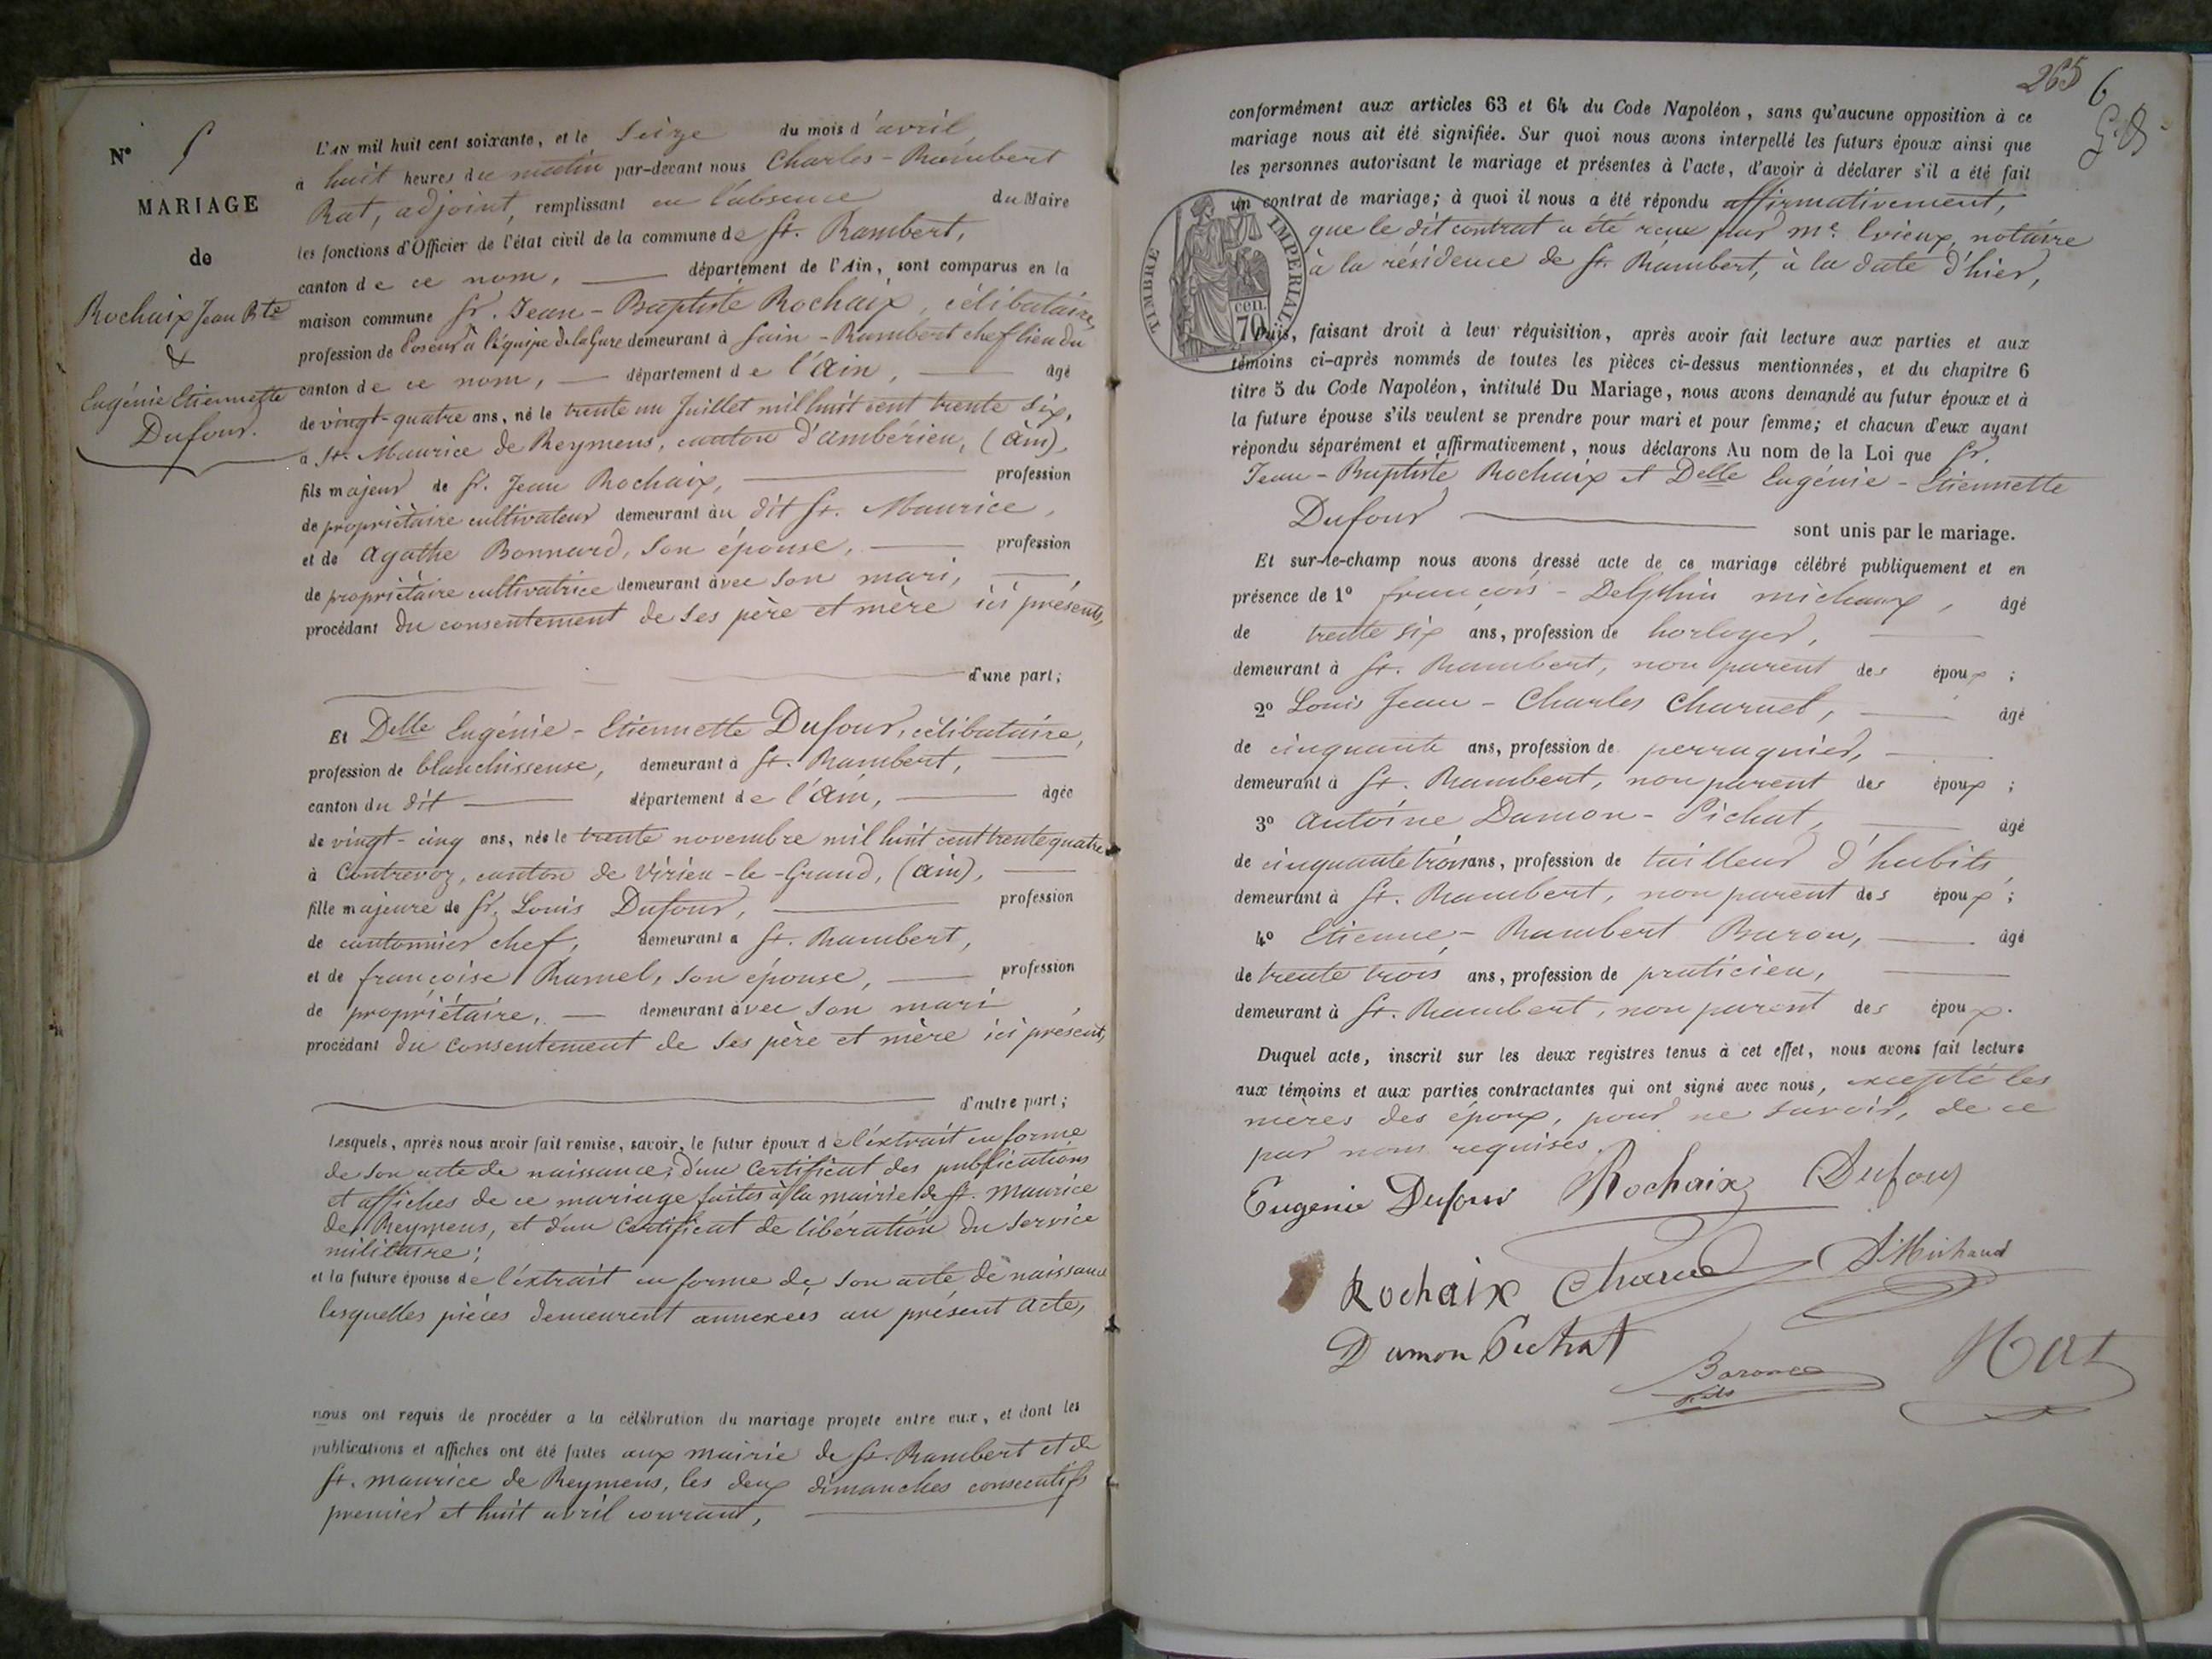 N° 5
MARIAGE
de
Rochaix Jean Bte
&
Eugénie Etiennette
Dufour.
L'AN mil huit cent soixante, et le Seize du mois d'avril,
à huit heures du matin par-devant nous Charles-Rambert
Rat, adjoint, remplissant en l'absence du Maire
les fonctions d'Officier de l'état civil de la commune de St. Rambert,
canton de ce nom, département de l'Ain, sont comparus en la
maison commune Sr. Jean-Baptiste Rochaix, célibataire,
profession de Poseur à l'équipe de la Gare demeurant à Sain-Rambert chef lieu du
canton de ce nom, département de l'Ain, âgé
de vingt-quatre ans, né le trente un Juillet mil huit cent trente six,
à St. Maurice de Reymens, canton d'ambérieu, (Ain),
fils majeur de Sr. Jean Rochaix, profession
de propriétaire cultivateur demeurant au dit St. Maurice,
et de Agathe Bonnard, son épouse, profession
de propriétaire cultivatrice demeurant avec son mari,
procédant du consentement de ses père et mère ici présents,
d'une part;
Et Delle Eugénie-Etiennette Dufour, célibataire,
profession de blanchisseuse, demeurant à St. Rambert,
canton du dit département de l'Ain, âgée
de vingt-cinq ans, née le trente novembre mil huit cent trente quatre
à Contrevoz, canton de Virieu-le-Grand, (Ain),
fille majeure de Sr. Louis Dufour, profession
de cantonnier chef, demeurant à St. Rambert,
et de françoise Ramel, son épouse, profession
de propriétaire, demeurant avec son mari,
procédant du consentement de ses père et mère ici présent,
d'autre part;
Lesquels, après nous avoir fait remise, savoir, le futur époux de l'extrait en forme
de son acte de naissance, d'un certificat des publications
et affiches de ce mariage faites à la mairie de St. Maurice
de Reymens, et d'un Certificat de libération du service
militaire;
et la future épouse de l'extrait en forme de son acte de naissance
lesquelles pièces demeurent annexées au présent acte,
nous ont requis de procéder à la célébration du mariage projeté entre eux, et dont les
publications et affiches ont été faites aux mairie de St. Rambert et de
St. maurice de Reymens, les deux dimanches consecutifs
premier et huit avril courant,
265
6
conformément aux articles 63 et 64 du Code Napoléon, sans qu'aucune opposition à ce
mariage nous ait été signifiée. Sur quoi nous avons interpellé les futurs époux ainsi que
les personnes autorisant le mariage et présentes à l'acte, d'avoir à déclarer s'il a été fait
un contrat de mariage; à quoi il nous a été répondu affirmativement,
que le dit contrat a été reçu par Me. Evieux, notaire
à la résidence de St. Rambert, à la date d'hier,
TIMBRE IMPERIAL
cen.
70
Puis, faisant droit à leur réquisition, après avoir fait lecture aux parties et aux
témoins ci-après nommés de toutes les pièces ci-dessus mentionnées, et du chapitre 6
titre 5 du Code Napoléon, intitulé Du Mariage, nous avons demandé au futur époux et à
la future épouse s'ils veulent se prendre pour mari et pour femme; et chacun d'eux ayant
répondu séparément et affirmativement, nous déclarons Au nom de la Loi que Sr.
Jean-Baptiste Rochaix et Delle Eugénie-Etiennette
Dufour sont unis par le mariage.
Et sur-le-champ nous avons dressé acte de ce mariage célébré publiquement et en
présence de 1° françois-Delphin michaux, âgé
de trente six ans, profession de horloger,
demeurant à St. Rambert, non parent des époux;
2° Louis Jean-Charles Charvet, âgé
de cinquante ans, profession de perruquier,
demeurant à St. Rambert, non parent des époux;
3° Antoine Damon-Pichat, âgé
de cinquante trois ans, profession de tailleur d'habits,
demeurant à St. Rambert, non parent des époux;
4° Etienne-Rambert Baron, âgé
de trente trois ans, profession de praticien,
demeurant à St. Rambert, non parent des époux.
Duquel acte, inscrit sur les deux registres tenus à cet effet, nous avons fait lecture
aux témoins et aux parties contractantes qui ont signé avec nous, excepté les
mères des époux, pour ne savoir, de ce
par nous requises.
Eugenie Dufour Rochaix Dufour
Rochaix Charvet D Michaud
Damon Pichat
Baron
fils
Rat